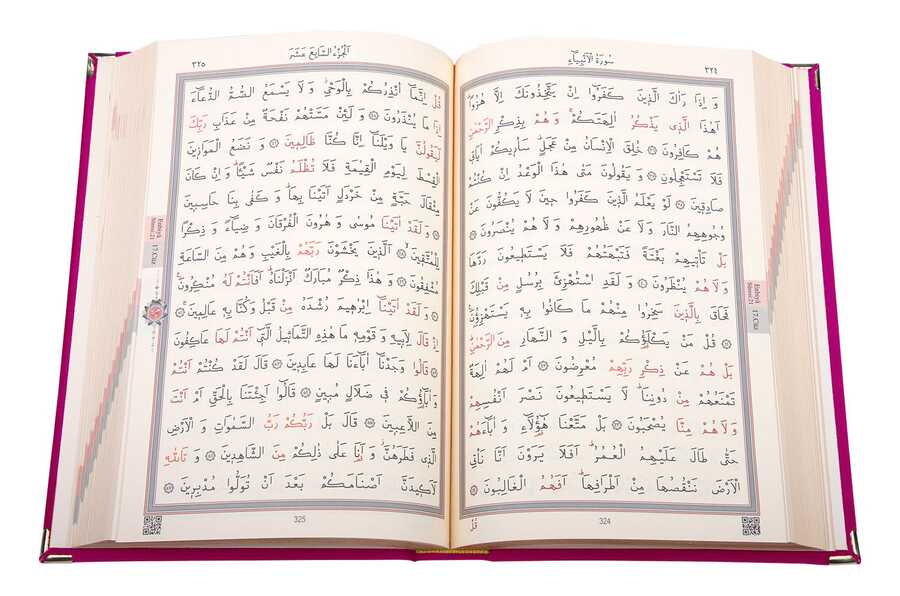 ٣٢٤
سُورَةُ الْاَنْبِيَاءِ
وَ اِذَا رَاٰكَ الَّذِينَ كَفَرُٓوا اِنْ يَتَّخِذُونَكَ اِلَّا هُزُوًاۜ
اَهٰذَا الَّذِي يَذْكُرُ اٰلِهَتَكُمْۚ وَ هُمْ بِذِكْرِ الرَّحْمٰنِ
هُمْ كَافِرُونَ ﴿٣٦﴾ خُلِقَ الْاِنْسَانُ مِنْ عَجَلٍۜ سَاُرِيكُمْ اٰيَاتِي
فَلَا تَسْتَعْجِلُونِ ﴿٣٧﴾ وَ يَقُولُونَ مَتٰى هٰذَا الْوَعْدُ اِنْ كُنْتُمْ
صَادِقِينَ ﴿٣٨﴾ لَوْ يَعْلَمُ الَّذِينَ كَفَرُوا حِينَ لَا يَكُفُّونَ عَنْ
وُجُوهِهِمُ النَّارَ وَ لَا عَنْ ظُهُورِهِمْ وَ لَا هُمْ يُنْصَرُونَ ﴿٣٩﴾
بَلْ تَأْتِيهِمْ بَغْتَةً فَتَبْهَتُهُمْ فَلَا يَسْتَطِيعُونَ رَدَّهَا
وَ لَا هُمْ يُنْظَرُونَ ﴿٤٠﴾ وَ لَقَدِ اسْتُهْزِئَ بِرُسُلٍ مِنْ قَبْلِكَ
فَحَاقَ بِالَّذِينَ سَخِرُوا مِنْهُمْ مَا كَانُوا بِهِ يَسْتَهْزِؤُ۫نَ
﴿٤١﴾ قُلْ مَنْ يَكْلَؤُ۬كُمْ بِالَّيْلِ وَ النَّهَارِ مِنَ الرَّحْمٰنِۜ
بَلْ هُمْ عَنْ ذِكْرِ رَبِّهِمْ مُعْرِضُونَ ﴿٤٢﴾ اَمْ لَهُمْ اٰلِهَةٌ
تَمْنَعُهُمْ مِنْ دُونِنَاۜ لَا يَسْتَطِيعُونَ نَصْرَ اَنْفُسِهِمْ
وَ لَا هُمْ مِنَّا يُصْحَبُونَ ﴿٤٣﴾ بَلْ مَتَّعْنَا هٰٓؤُ۬لَٓاءِ وَ اٰبَٓاءَهُمْ
حَتّٰى طَالَ عَلَيْهِمُ الْعُمُرُۜ اَفَلَا يَرَوْنَ اَنَّا نَأْتِي
الْاَرْضَ نَنْقُصُهَا مِنْ اَطْرَافِهَاۜ اَفَهُمُ الْغَالِبُونَ ﴿٤٤﴾
قُلْ
324
Enbiyâ
Sûresi:21
17.Cüz
٣٢٥
اَلْجُزْءُ السَّابِعَ عَشَرَ
قُلْ اِنَّمَٓا اُنْذِرُكُمْ بِالْوَحْيِۘ وَ لَا يَسْمَعُ الصُّمُّ الدُّعَٓاءَ
اِذَا مَا يُنْذَرُونَ ﴿٤٥﴾ وَ لَئِنْ مَسَّتْهُمْ نَفْحَةٌ مِنْ عَذَابِ رَبِّكَ
لَيَقُولُنَّ يَا وَيْلَنَٓا اِنَّا كُنَّا ظَالِمِينَ ﴿٤٦﴾ وَ نَضَعُ الْمَوَازِينَ
الْقِسْطَ لِيَوْمِ الْقِيٰمَةِ فَلَا تُظْلَمُ نَفْسٌ شَيْـًٔاۜ وَ اِنْ كَانَ
مِثْقَالَ حَبَّةٍ مِنْ خَرْدَلٍ اَتَيْنَا بِهَاۜ وَ كَفٰى بِنَا حَاسِبِينَ
﴿٤٧﴾ وَ لَقَدْ اٰتَيْنَا مُوسٰى وَ هٰرُونَ الْفُرْقَانَ وَ ضِيَٓاءً وَ ذِكْرًا
لِلْمُتَّقِينَۙ ﴿٤٨﴾ اَلَّذِينَ يَخْشَوْنَ رَبَّهُمْ بِالْغَيْبِ وَ هُمْ مِنَ السَّاعَةِ
مُشْفِقُونَ ﴿٤٩﴾ وَ هٰذَا ذِكْرٌ مُبَارَكٌ اَنْزَلْنَاهُۜ اَفَاَنْتُمْ لَهُ مُنْكِرُونَ۟
﴿٥٠﴾ وَ لَقَدْ اٰتَيْنَٓا اِبْرٰهِيمَ رُشْدَهُ مِنْ قَبْلُ وَ كُنَّا بِهِ عَالِمِينَۚ ﴿٥١﴾
اِذْ قَالَ لِاَبِيهِ وَ قَوْمِهِ مَا هٰذِهِ التَّمَاثِيلُ الَّتِٓي اَنْتُمْ لَهَا عَاكِفُونَ
﴿٥٢﴾ قَالُوا وَجَدْنَٓا اٰبَٓاءَنَا لَهَا عَابِدِينَ ﴿٥٣﴾ قَالَ لَقَدْ كُنْتُمْ اَنْتُمْ
وَ اٰبَٓاؤُ۬كُمْ فِي ضَلَالٍ مُبِينٍ ﴿٥٤﴾ قَالُٓوا اَجِئْتَنَا بِالْحَقِّ اَمْ اَنْتَ
مِنَ اللَّاعِبِينَ ﴿٥٥﴾ قَالَ بَلْ رَبُّكُمْ رَبُّ السَّمٰوَاتِ وَ الْاَرْضِ
الَّذِي فَطَرَهُنَّۘ وَ اَنَا۬ عَلٰى ذٰلِكُمْ مِنَ الشَّاهِدِينَ ﴿٥٦﴾ وَ تَاللّٰهِ
لَاَكِيدَنَّ اَصْنَامَكُمْ بَعْدَ اَنْ تُوَلُّوا مُدْبِرِينَ ﴿٥٧﴾
325
Enbiyâ
Sûresi:21
17.Cüz